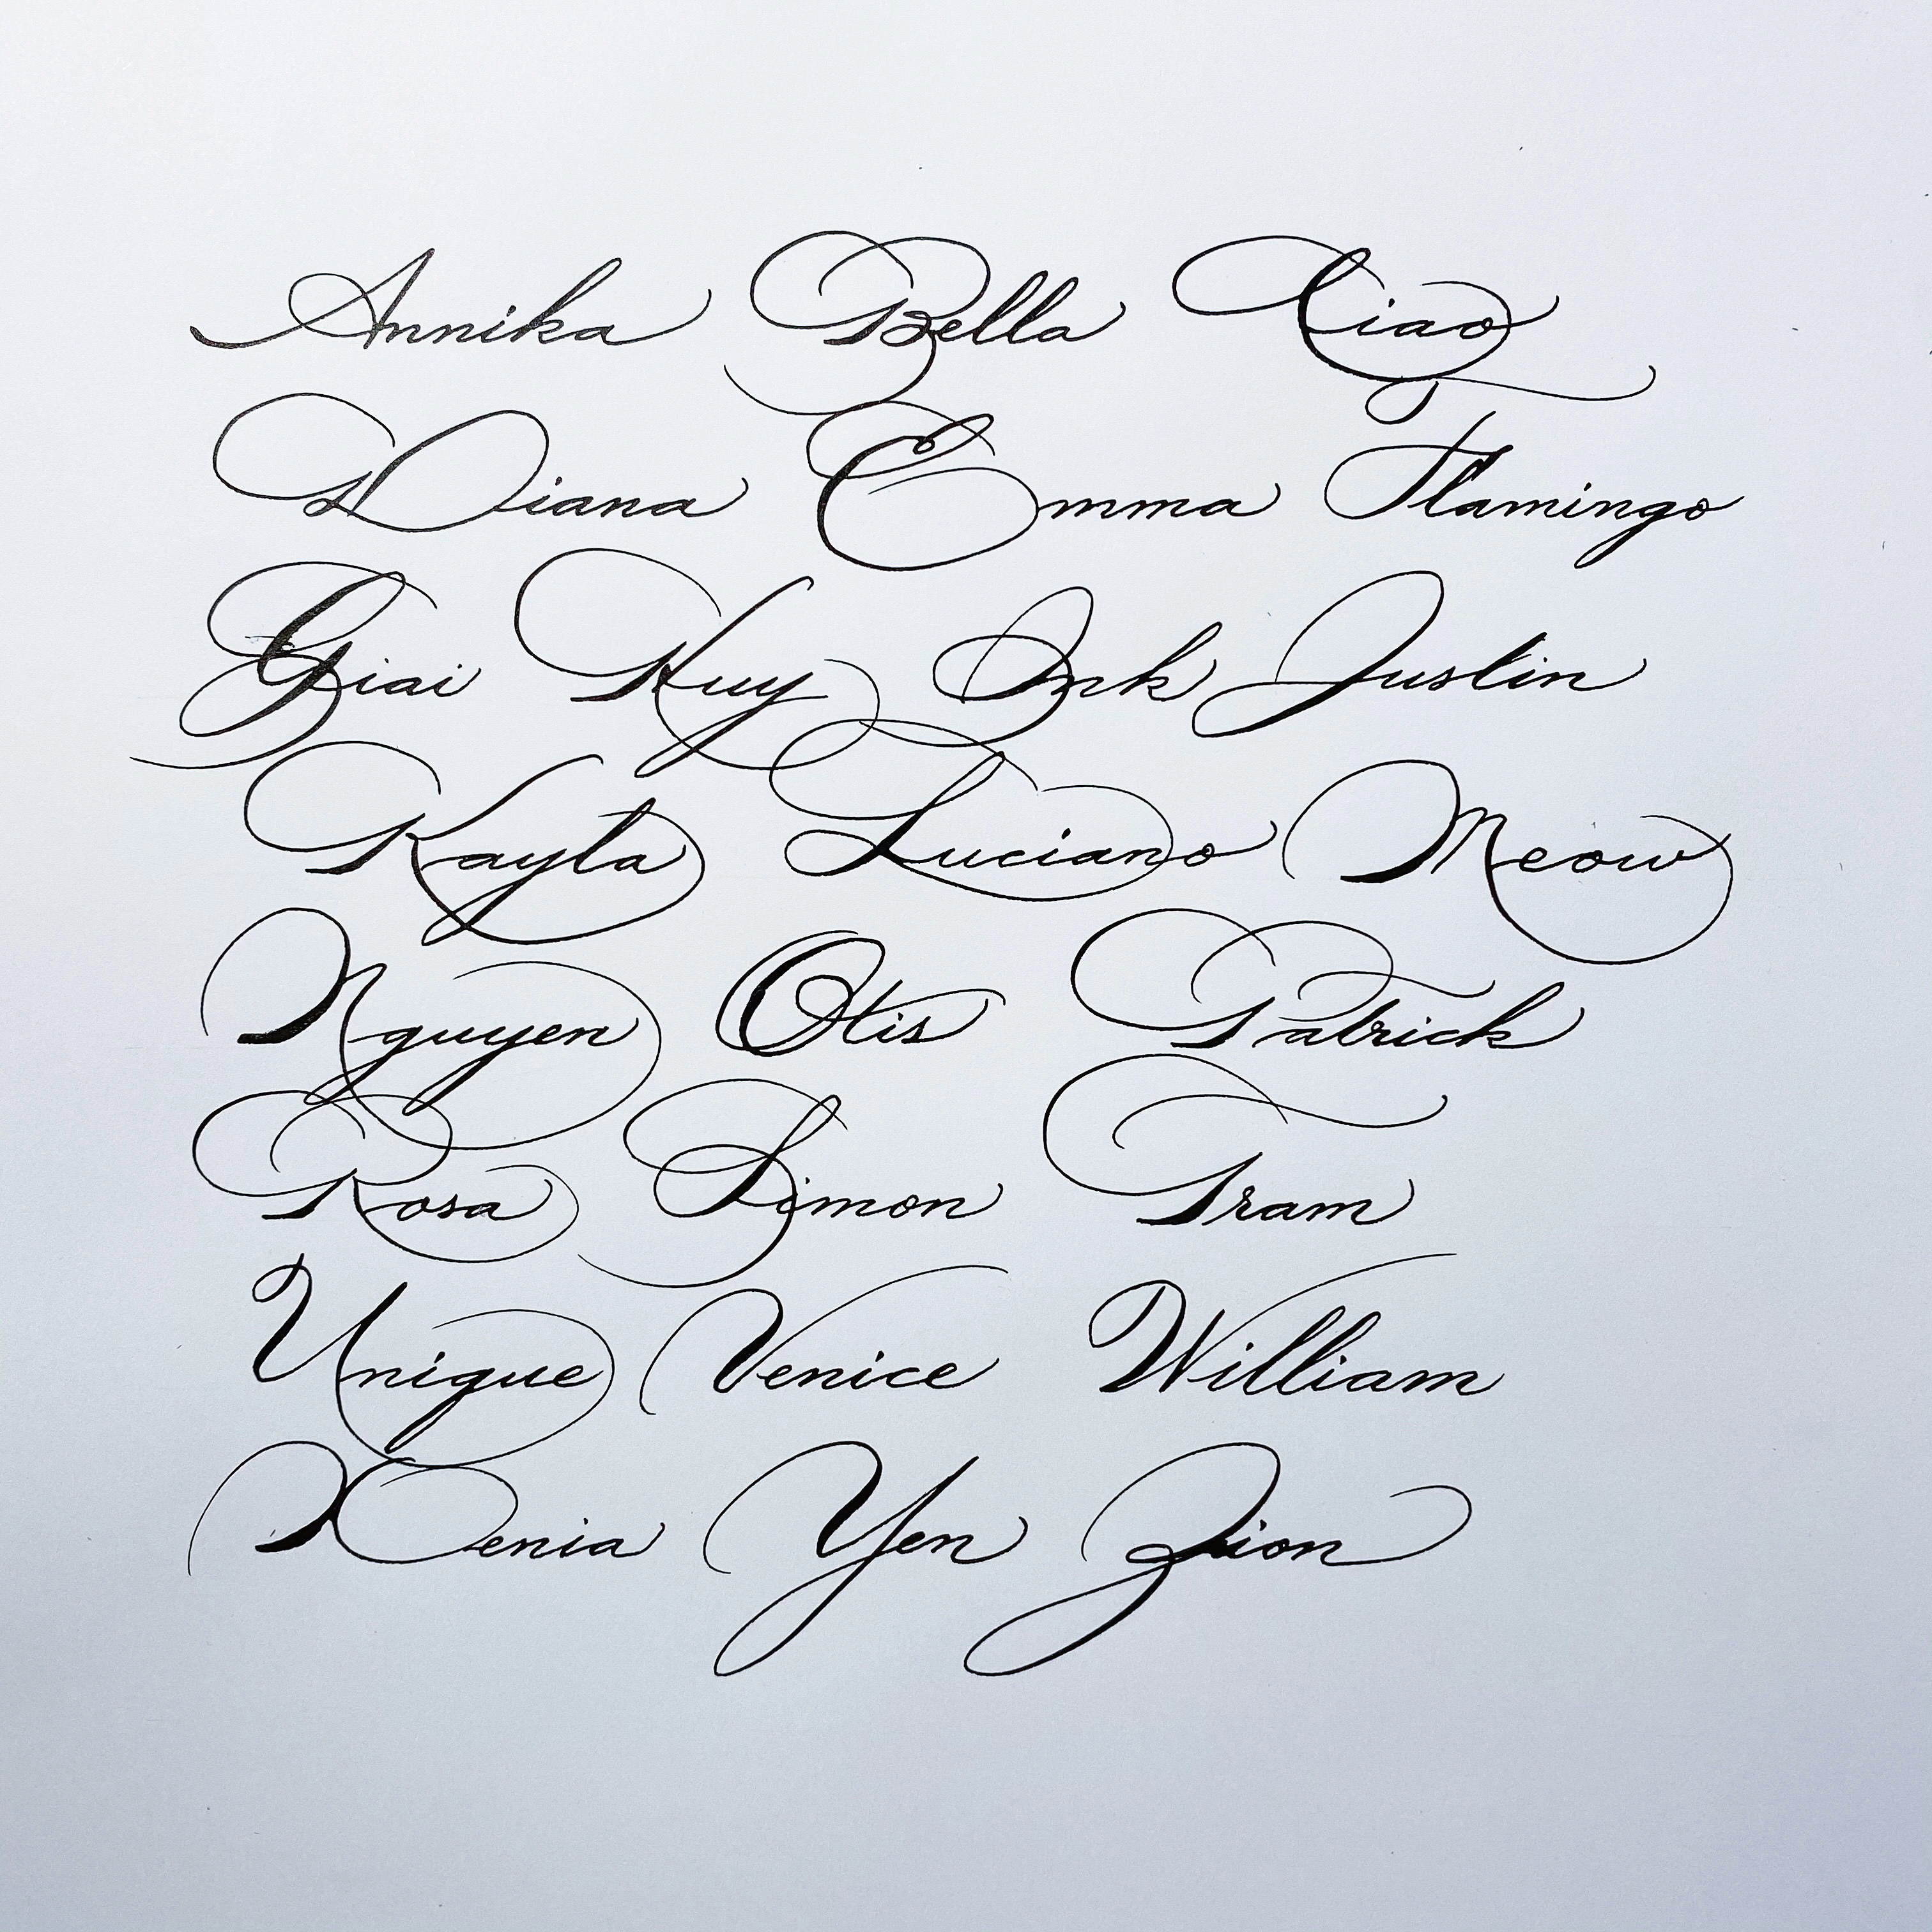 Annika Bella Ciao
Diana Emma Flamingo
Giai Huy Ink Justin
Kayla Luciano Meow
Nguyen Otis Patrick
Rosa Simon Tram
Unique Venice William
Xenia Yen Zion